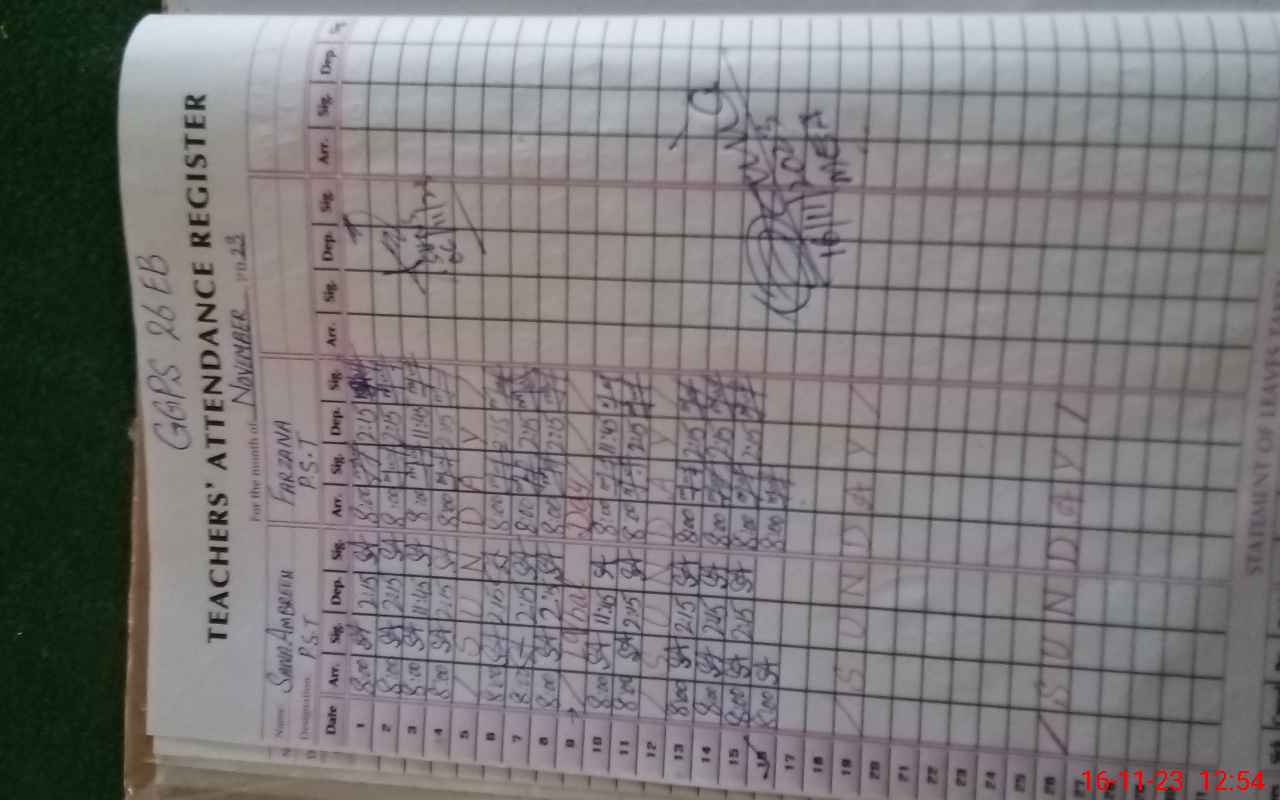 GGPS 26 EB
TEACHERS' ATTENDANCE REGISTER
For the month of NOVEMBER 2023
Name SANA AMBREEN FARZANA
Designation P.S.T P.S.T
Date Arr. Sig. Dep. Sig. Arr. Sig. Dep. Sig. Arr. Sig. Dep. Sig. Arr. Sig. Dep
1 8:00 SA 2:15 SA 8:00 2:15
2 8:00 SA 2:15 SA 8:00 2:15
3 8:00 SA 11:45 SA 8:00 11:45
4 8:00 SA 2:15 SA 8:00 2:15
5 / S U N D A Y /
6 8:00 SA 2:15 SA 8:00 2:15
7 8:00 SA 2:15 SA 8:00 2:15
8 8:00 SA 2:15 SA 8:00 2:15
9 Iqbal Day
10 8:00 SA 11:45 SA 8:00 11:45
11 8:00 SA 2:15 SA 8:00 2:15
12 / S U N D A Y /
13 8:00 SA 2:15 SA 8:00 2:15
14 8:00 SA 2:15 SA 8:00 2:15
15 8:00 SA 2:15 SA 8:00 2:15
16 8:00 SA 8:00
17
18
19 / S U N D A Y /
20
21
22
23
24
25
26 / S U N D A Y /
27
16/11/2023
MEA
STATEMENT OF LEAVES
16-11-23 12:54